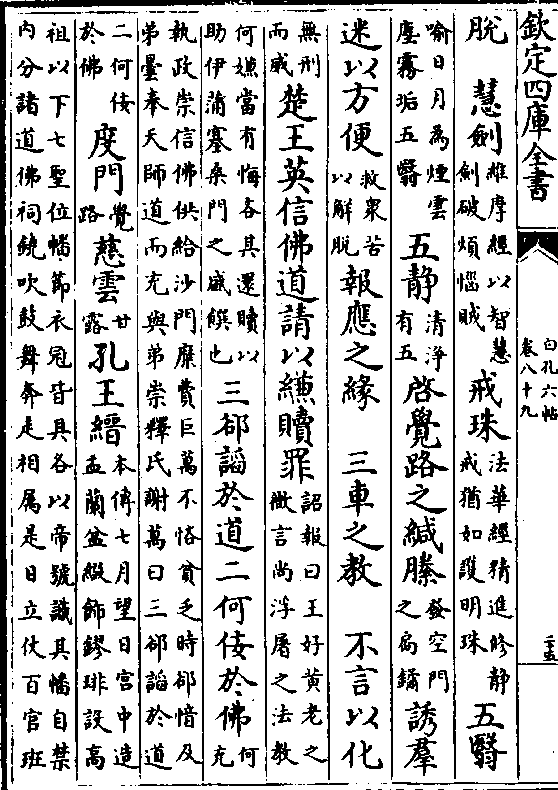 欽定四庫全書
白孔六帖
卷八十九
二十五
脫　慧劍維摩經以智慧劍破煩惱賊　戒珠法華經精進修静戒猶如護明珠　五翳
喻日月為煙雲塵霧垢五翳　五静清浄有五　啓覺路之緘縢發空門之扃鐍　誘羣
迷以方便救衆苦以解脫　報應之緣　三車之教　不言以化
無刑而威　楚王英信佛道請以縑贖罪詔報曰王好黄老之微言尚浮屠之法教
何嫌當有悔吝其還贖以助伊蒲塞桑門之盛饌也　三郤謟於道二何佞於佛何充
執政崇信佛供給沙門縻費巨萬不恡貧乏時郤愔及弟曇奉天師道而充與弟崇釋氏謝萬曰三郤謟於道
二何佞於佛　度門覺路　慈雲甘露　孔王縉本傳七月望日宫中造盂蘭盆綴飾鏐琲設高
祖以下七聖位幡節衣冠皆具各以帝號識其幡自禁内分諸道佛祠鐃吹鼓舞奔走相屬是日立仗百官班